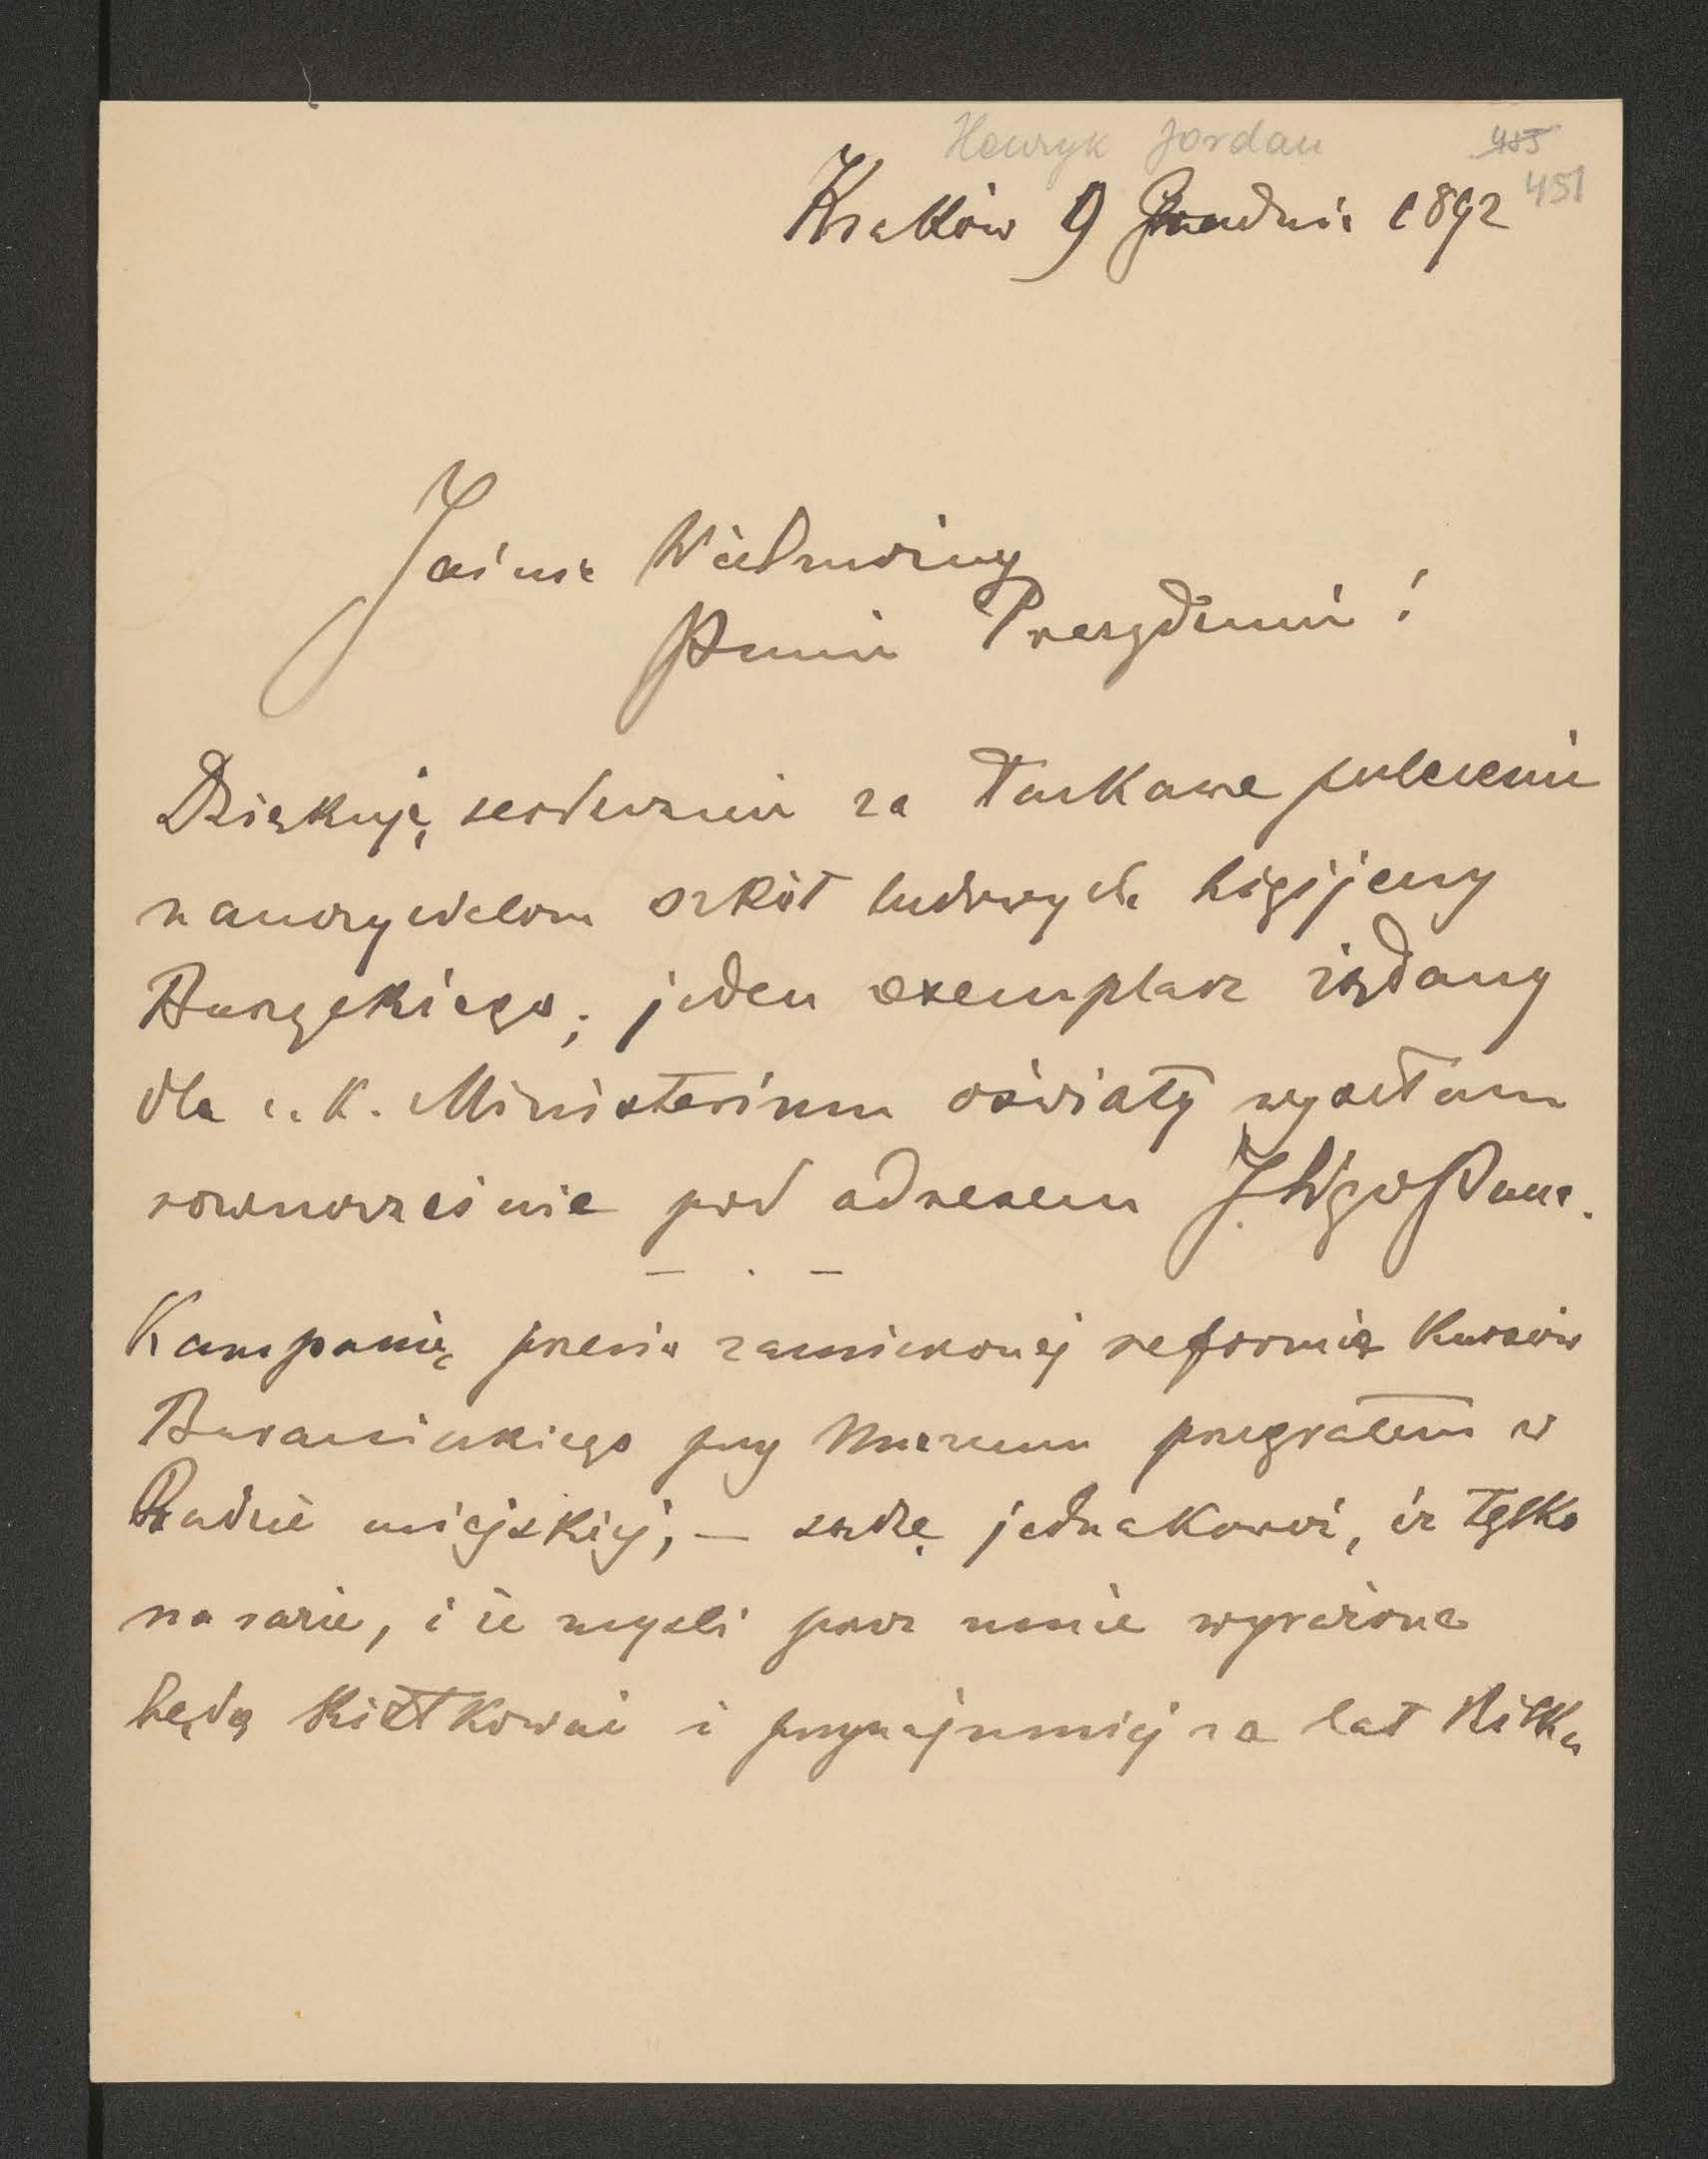 Henryk Jordan
485
451
Kraków 9 Grudnia 1892
Jaśnie Wielmożny
Panie Prezydencie!
Dziękuję serdecznie za łaskawe polecenie
nauczycielom szkół ludowych higijeny
jeden exemplarz żądany
dla c. k. Ministerium oświaty wysełam
równocześnie pod adresem J. WgoPana.
— . —
Kampanię przeciw zamierzonej reformie Kursów
Baranieckiego przy Muzeum przegrałem w
Radzie miejskiej, — sądzę jednakowoż, iż tylko
na razie, i że myśli przez mnie wyrażone
będą kiełkować i przynajmniej za lat kilka